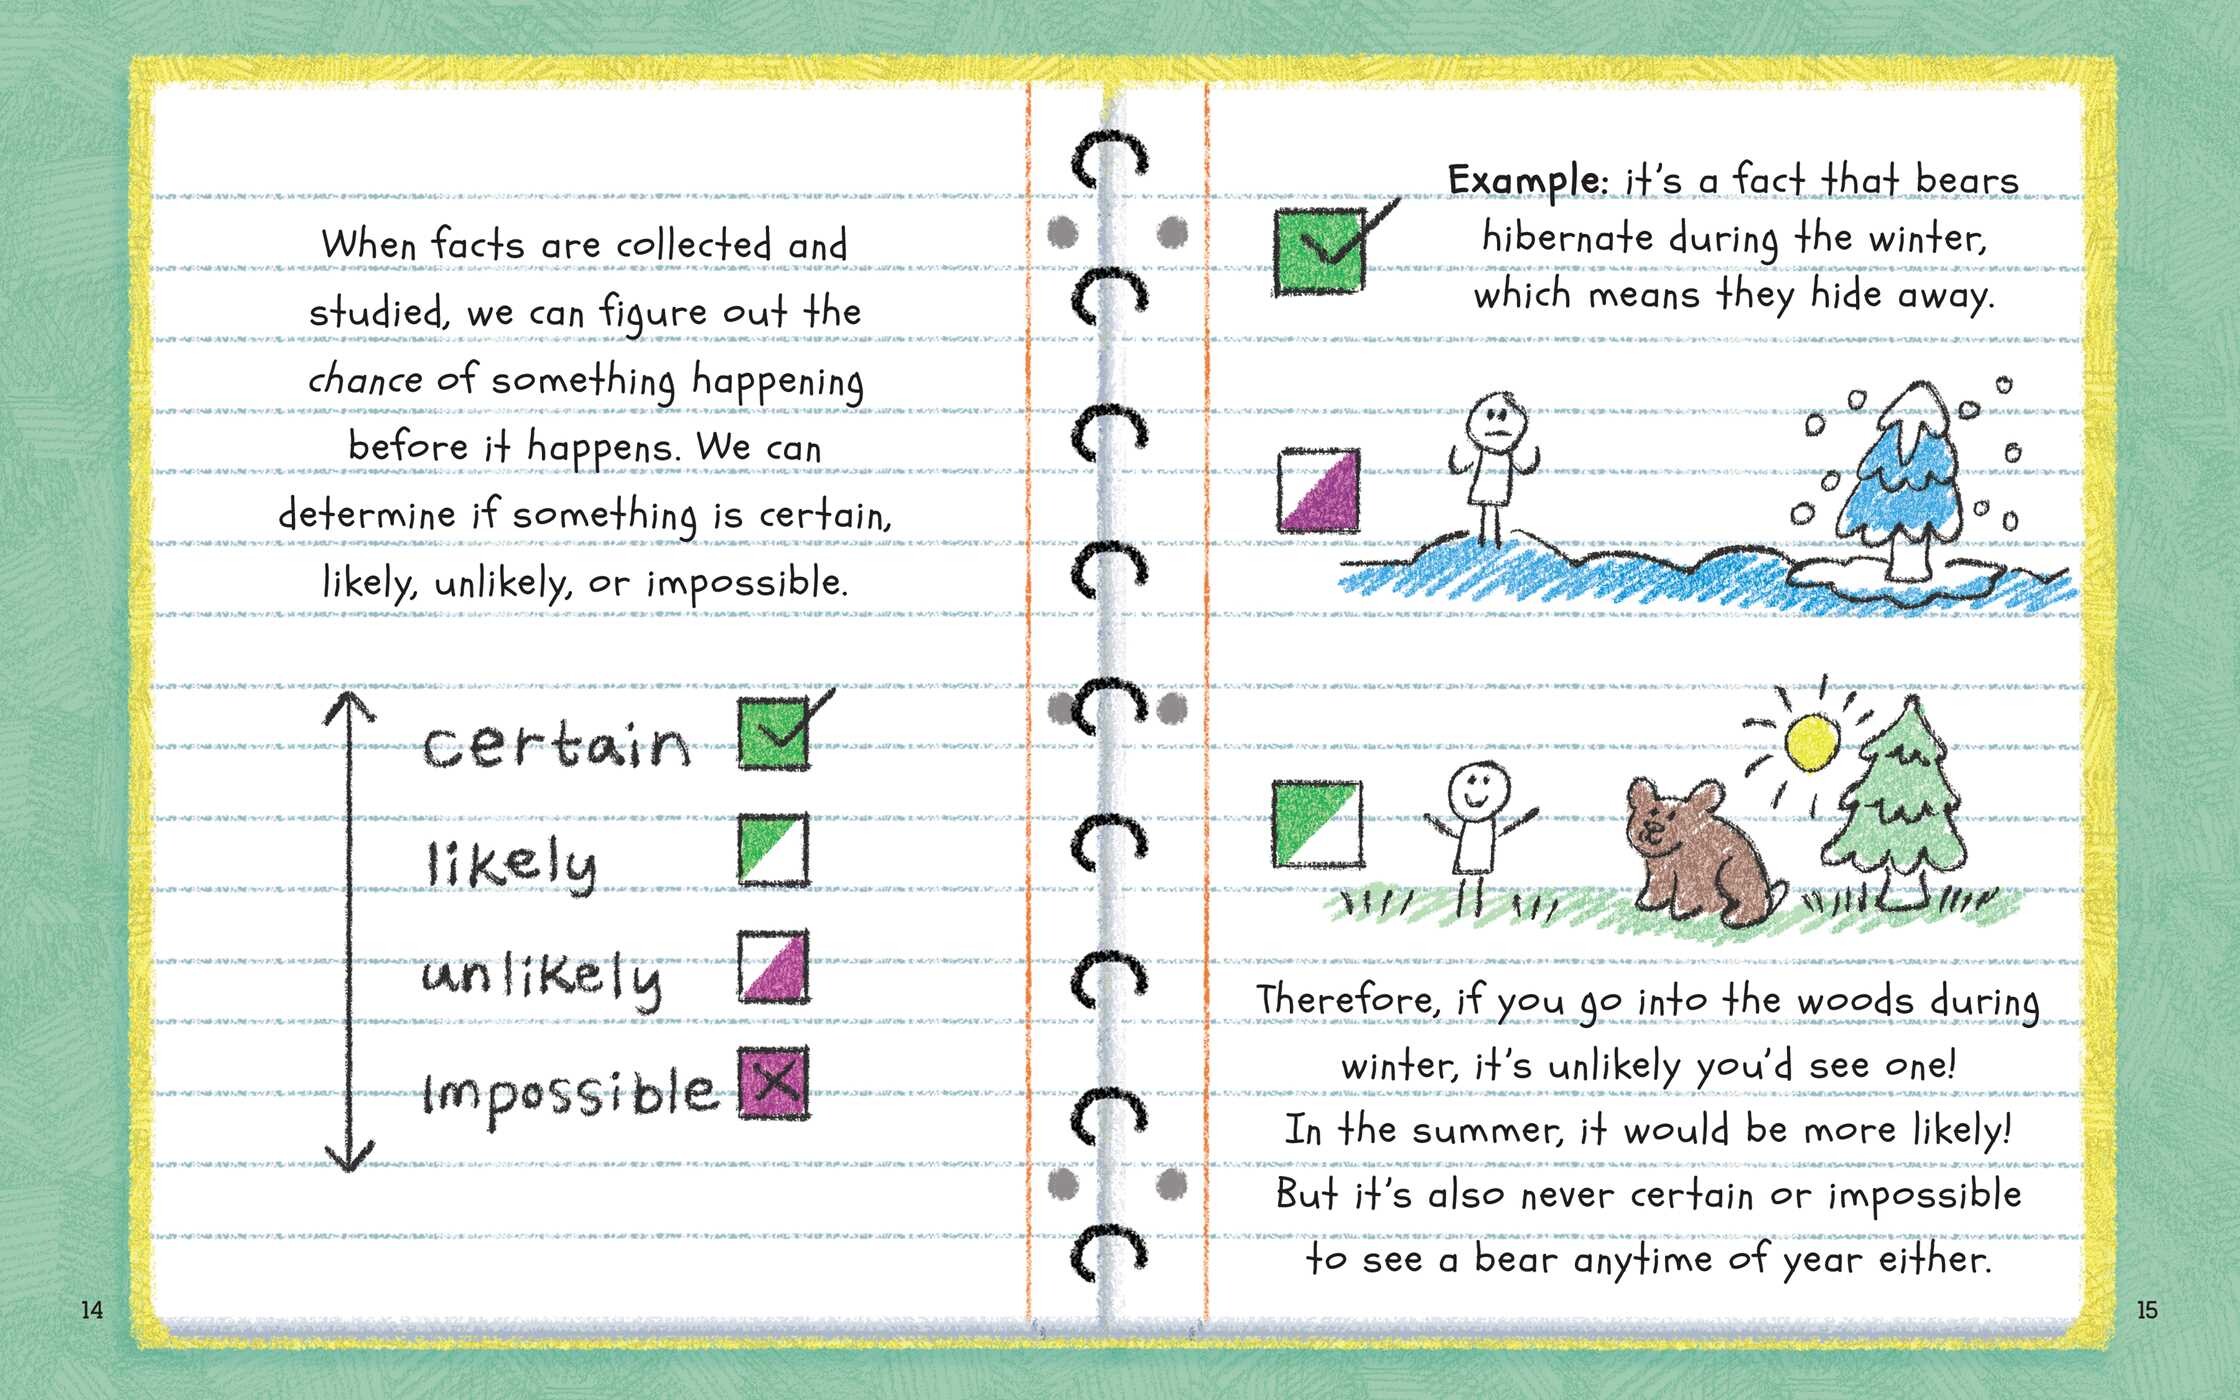 When facts are collected and
studied, we can figure out the
chance of something happening
before it happens. We can
determine if something is certain,
likely, unlikely, or impossible.
certain
likely
unlikely
Impossible
14
Example: it's a fact that bears
hibernate during the winter,
which means they hide away.
Therefore, if you go into the woods during
winter, it's unlikely you'd see one!
In the summer, it would be more likely!
But it's also never certain or impossible
to see a bear anytime of year either.
15